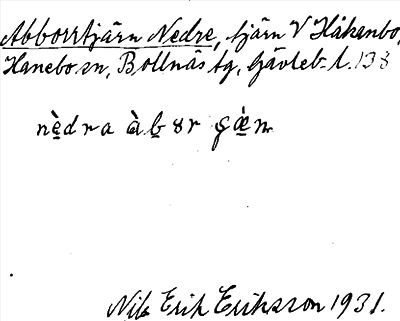 Abborrtjärn Nedre, tjärn V Håkanbo,
Hanebo sn, Bollnäs tg, Gävleb. l. 138
nèdra àbɤr
Nils Erik Eriksson 1931.